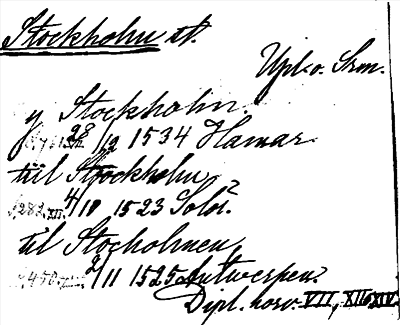 Stockholm st.
Upl. o. Srm.
y Stockholm.
28/12 1534 Hamar.
till Stockholm,
s. 282. XII. 4/10 1523 Solöi?
til Stocholmen,
2/11 1525 Antwerpen.
Dipl. norv. VII, XII o. XIV.